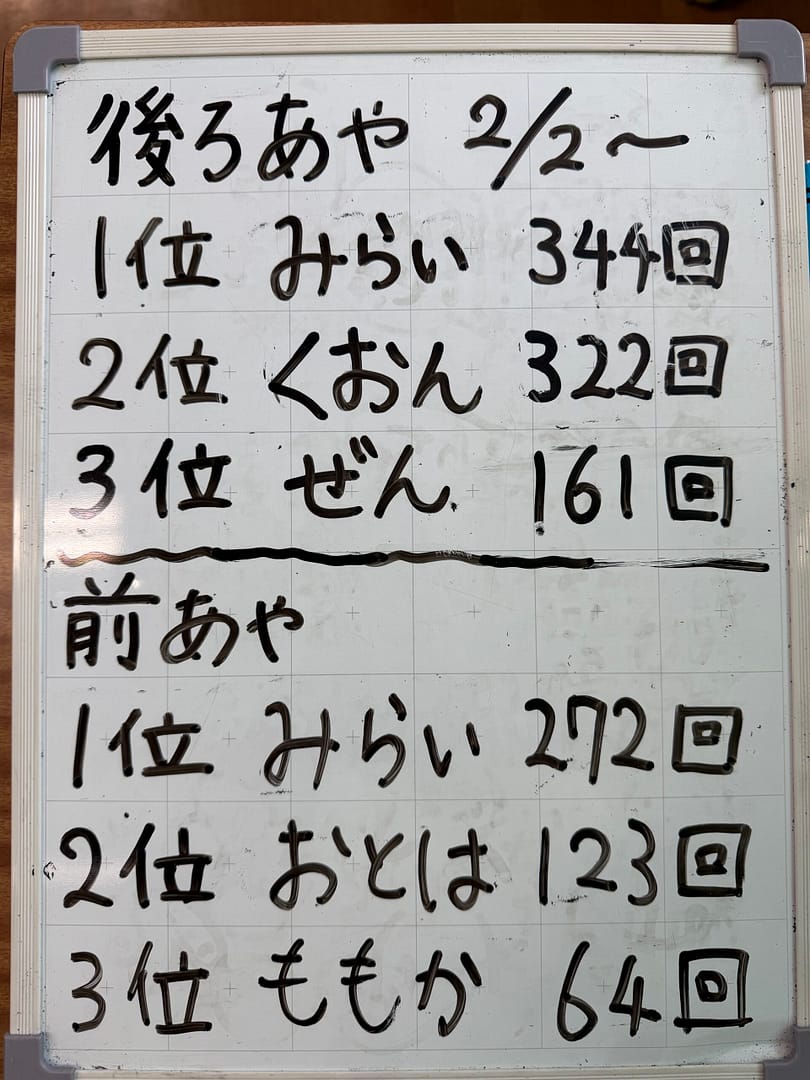 後ろあや 2/2〜
1位 みらい 344回
2位 くおん 322回
3位 ぜん 161回
前あや
1位 みらい 272回
2位 おとは 123回
3位 ももか 64回